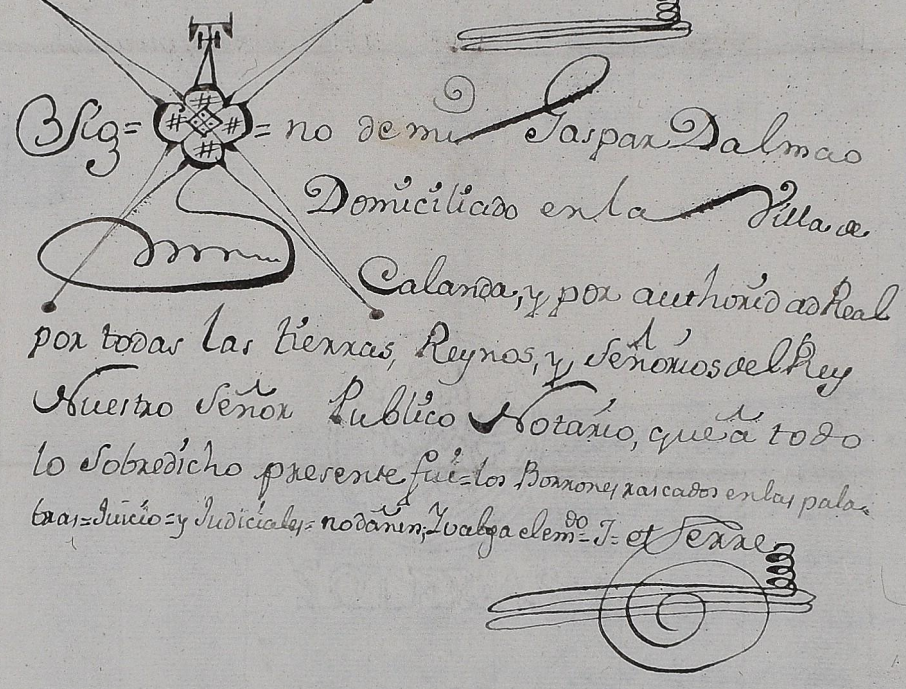 Sig= =no de mi Gaspar Dalmao
Domiciliado en la Villa de
Calanda, y por authoridad Real
por todas las tierras, Reynos, y Señorios del Rey
Nuestro Señor Publico Notario, que à todo
lo Sobredicho presente fui=los Borrones rascados en las pala-
bras=Juicio=y Judiciales= no dañen, Y valga el em.do=J= et Cerre.